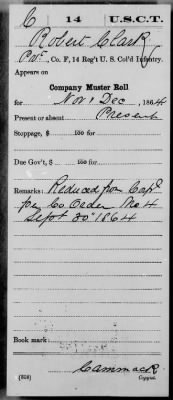 C 14 U.S.C.T.
Robert Clark
Pvt., Co. F, 14 Reg't U. S. Col'd Infantry.
Appears on
Company Muster Roll
for Nov & Dec, 1864
Present or absent Present
Stoppage, $ 100 for
Due Gov't, $ 100 for
Remarks: Reduced from Capl
per Co Order No 4
Sept 30" 1864
Book mark:
Cammack
(358) Copyist.